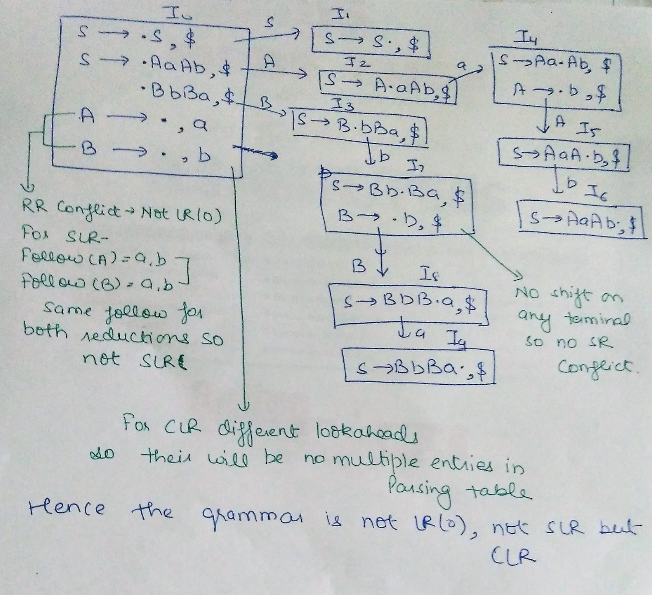 I₀
S → .S, $
S → .AaAb, $
.BbBa, $
A → . , a
B → . , b
S
I₁
S → S., $
A
I2
S → A.aAb, $
a
I4
S → Aa.Ab, $
A → .b, $
A I5
S → AaA.b, $
b I6
S → AaAb., $
B
I3
S → B.bBa, $
b I7
S → Bb.Ba, $
B → .b, $
B I8
S → BbB.a, $
a I9
S → BbBa., $
RR Conflict → Not LR(0)
For SLR-
Follow (A) = a, b
Follow (B) = a, b
Same follow for
both reductions so
not SLR
NO shift on
any terminal
so no SR
Conflict.
For CLR different lookaheads
so their will be no multiple entries in
Parsing table
Hence the grammar is not LR(0), not SLR but
CLR